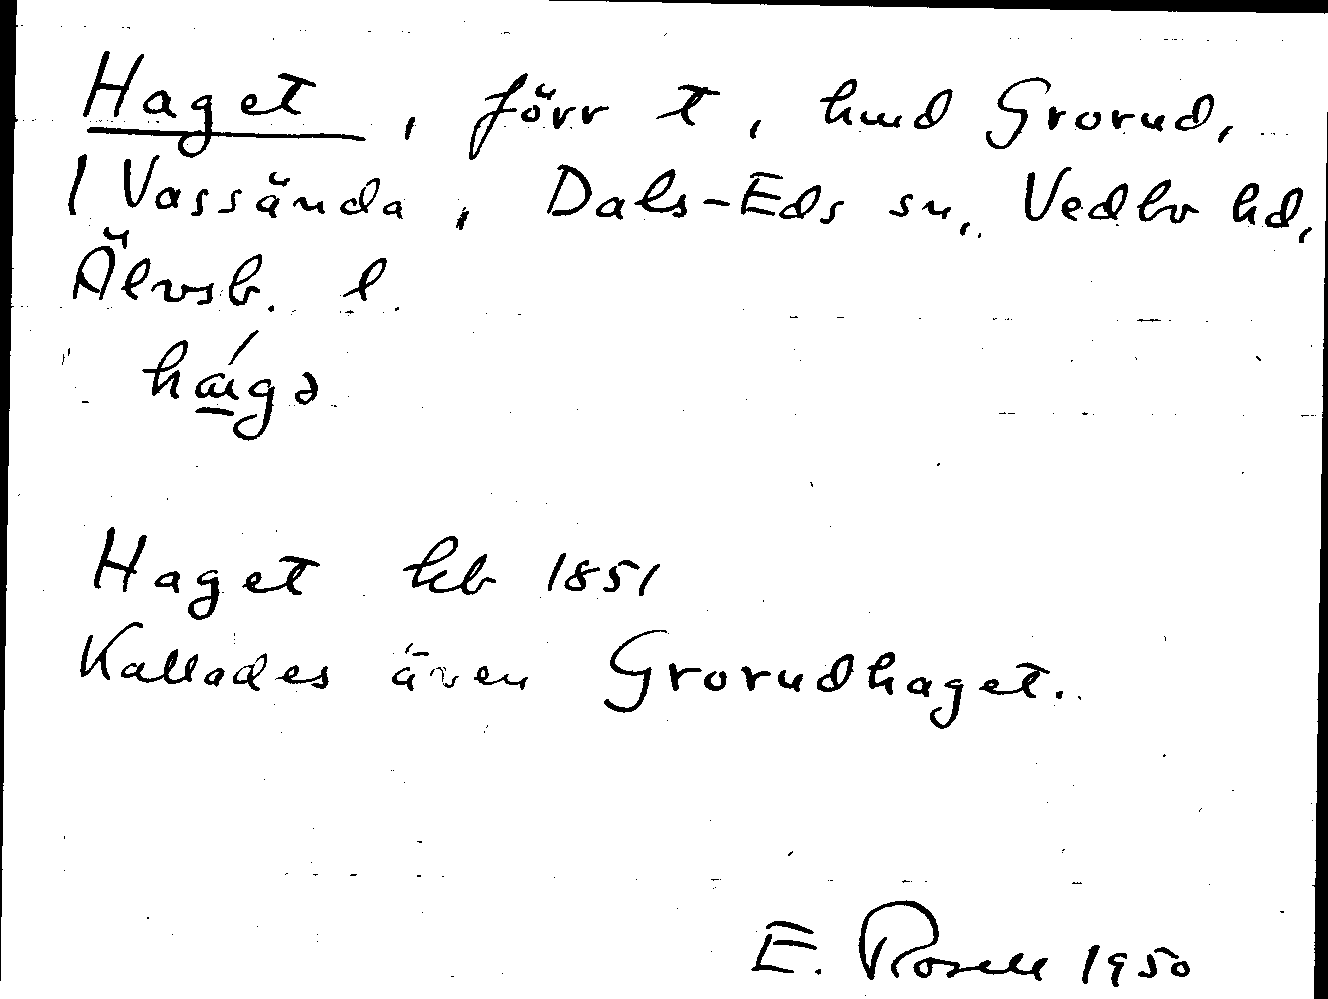 Haget, förr t, hmd Grorud,
1 Vassända, Dals-Eds sn, Vedbo hd,
Älvsb. l.
Haget hfb 1851
Kallades även Grorudhaget.
E. Rosell 1950